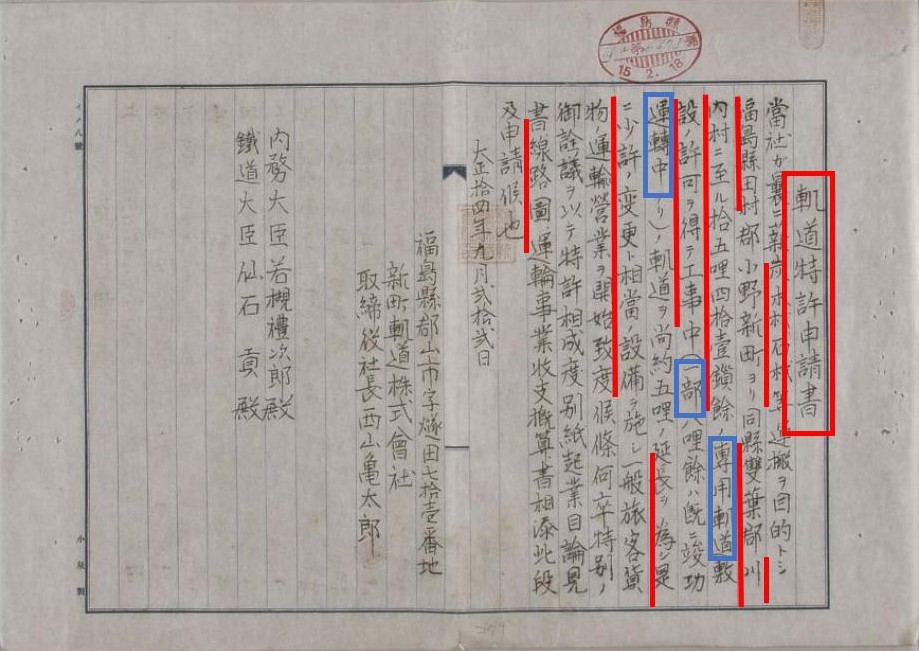 軌道特許申請書
當社ガ曩ニ薪炭木材石材等運搬ヲ目的トシ
福島縣田村郡小野新町ヨリ同縣雙葉郡川
內村ニ至ル拾五哩四拾壹鎖餘ノ專用軌道敷
設ノ許可ヲ得テ工事中(一部八哩餘ハ旣ニ竣功
運轉中ナリ)ノ軌道ヲ尚約五哩ノ延長ヲ為シ是
ニ少許ノ変更ト相當ノ設備ヲ施シ一般旅客貨
物ノ運輸營業ヲ開始致度候條何卒特別ノ
御詮議ヲ以テ特許相成度別紙起業目論見
書線路圖運輸事業收支概算書相添此段
及申請候也
大正拾四年九月貳拾貳日
福島縣郡山市字燧田七拾壹番地
新町軌道株式會社
取締役社長西山亀太郎
內務大臣若槻禮次郎殿
鐵道大臣仙石貢殿
福島縣
15.2.18
イノ八號
小泉製